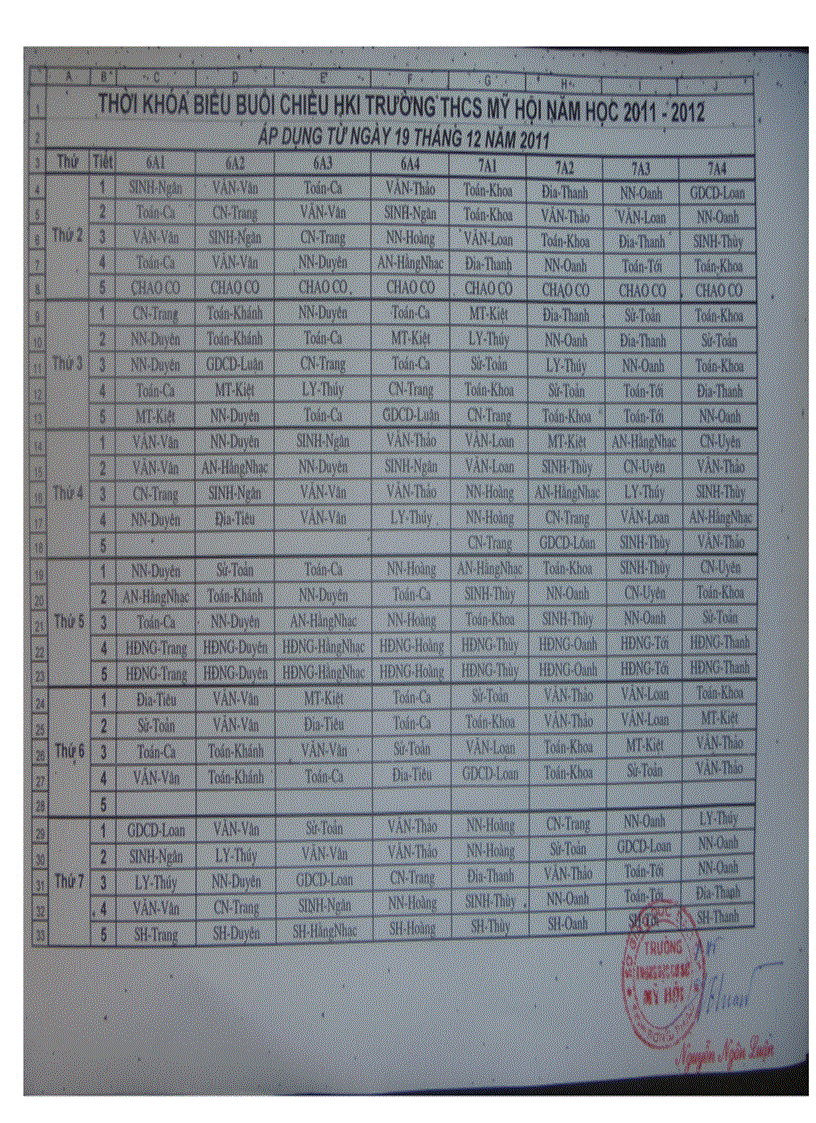 A B C D E F G H I J
1 THỜI KHÓA BIỂU BUỔI CHIỀU HKI TRƯỜNG THCS MỸ HỘI NĂM HỌC 2011 - 2012
2 ÁP DỤNG TỪ NGÀY 19 THÁNG 12 NĂM 2011
3 Thứ Tiết 6A1 6A2 6A3 6A4 7A1 7A2 7A3 7A4
4 1 SINH-Ngân VĂN-Vân Toán-Ca VĂN-Thảo Toán-Khoa Địa-Thanh NN-Oanh GDCD-Loan
5 2 Toán-Ca CN-Trang VĂN-Vân SINH-Ngân Toán-Khoa VĂN-Thảo VĂN-Loan NN-Oanh
6 Thứ 2 3 VĂN-Vân SINH-Ngân CN-Trang NN-Hoàng VĂN-Loan Toán-Khoa Địa-Thanh SINH-Thùy
7 4 Toán-Ca VĂN-Vân NN-Duyên AN-HằngNhạc Địa-Thanh NN-Oanh Toán-Tới Toán-Khoa
8 5 CHAO CO CHAO CO CHAO CO CHAO CO CHAO CO CHAO CO CHAO CO CHAO CO
9 1 CN-Trang Toán-Khánh NN-Duyên Toán-Ca MT-Kiệt Địa-Thanh Sử-Toản Toán-Khoa
10 2 NN-Duyên Toán-Khánh Toán-Ca MT-Kiệt LY-Thúy NN-Oanh Địa-Thanh Sử-Toản
11 Thứ 3 3 NN-Duyên GDCD-Luận CN-Trang Toán-Ca Sử-Toản LY-Thúy NN-Oanh Toán-Khoa
12 4 Toán-Ca MT-Kiệt LY-Thúy CN-Trang Toán-Khoa Sử-Toản Toán-Tới Địa-Thanh
13 5 MT-Kiệt NN-Duyên Toán-Ca GDCD-Luận CN-Trang Toán-Khoa Toán-Tới NN-Oanh
14 1 VĂN-Vân NN-Duyên SINH-Ngân VĂN-Thảo VĂN-Loan MT-Kiệt AN-HằngNhạc CN-Uyên
15 2 VĂN-Vân AN-HằngNhạc NN-Duyên SINH-Ngân VĂN-Loan SINH-Thùy CN-Uyên VĂN-Thảo
16 Thứ 4 3 CN-Trang SINH-Ngân VĂN-Vân VĂN-Thảo NN-Hoàng AN-HằngNhạc LY-Thúy SINH-Thùy
17 4 NN-Duyên Địa-Tiêu VĂN-Vân LY-Thúy NN-Hoàng CN-Trang VĂN-Loan AN-HằngNhạc
18 5 CN-Trang GDCD-Loan SINH-Thùy VĂN-Thảo
19 1 NN-Duyên Sử-Toản Toán-Ca NN-Hoàng AN-HằngNhạc Toán-Khoa SINH-Thùy CN-Uyên
20 2 AN-HằngNhạc Toán-Khánh NN-Duyên Toán-Ca SINH-Thùy NN-Oanh CN-Uyên Toán-Khoa
21 Thứ 5 3 Toán-Ca NN-Duyên AN-HằngNhạc NN-Hoàng Toán-Khoa SINH-Thùy NN-Oanh Sử-Toản
22 4 HĐNG-Trang HĐNG-Duyên HĐNG-HằngNhạc HĐNG-Hoàng HĐNG-Thùy HĐNG-Oanh HĐNG-Tới HĐNG-Thanh
23 5 HĐNG-Trang HĐNG-Duyên HĐNG-HằngNhạc HĐNG-Hoàng HĐNG-Thùy HĐNG-Oanh HĐNG-Tới HĐNG-Thanh
24 1 Địa-Tiêu VĂN-Vân MT-Kiệt Toán-Ca Sử-Toản VĂN-Thảo VĂN-Loan Toán-Khoa
25 2 Sử-Toản VĂN-Vân Địa-Tiêu Toán-Ca Toán-Khoa VĂN-Thảo VĂN-Loan MT-Kiệt
26 Thứ 6 3 Toán-Ca Toán-Khánh VĂN-Vân Sử-Toản VĂN-Loan Toán-Khoa MT-Kiệt VĂN-Thảo
27 4 VĂN-Vân Toán-Khánh Toán-Ca Địa-Tiêu GDCD-Loan Toán-Khoa Sử-Toản VĂN-Thảo
28 5
29 1 GDCD-Loan VĂN-Vân Sử-Toản VĂN-Thảo NN-Hoàng CN-Trang NN-Oanh LY-Thúy
30 2 SINH-Ngân LY-Thúy VĂN-Vân VĂN-Thảo NN-Hoàng Sử-Toản GDCD-Loan NN-Oanh
31 Thứ 7 3 LY-Thúy NN-Duyên GDCD-Loan CN-Trang Địa-Thanh VĂN-Thảo Toán-Tới NN-Oanh
32 4 VĂN-Vân CN-Trang SINH-Ngân NN-Hoàng SINH-Thùy NN-Oanh Toán-Tới Địa-Thanh
33 5 SH-Trang SH-Duyên SH-HằngNhạc SH-Hoàng SH-Thùy SH-Oanh SH-Tới SH-Thanh
TRƯỜNG
MỸ HỘI
Nguyễn Ngôn Luận